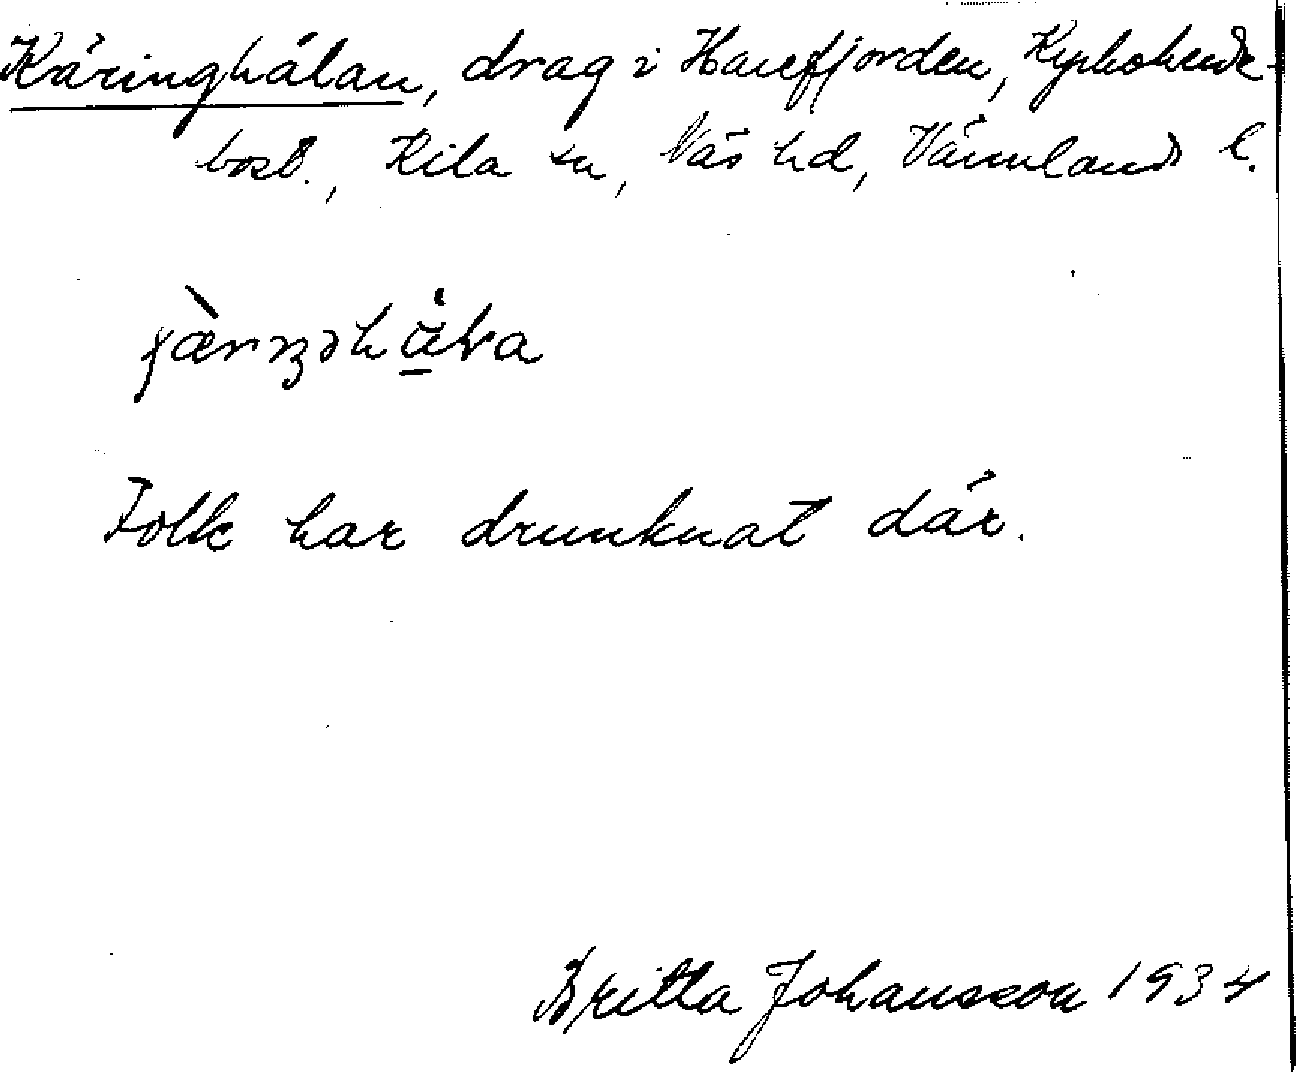 Käringhålan, drag i Harefjorden, Kyrkobende-
bost., Kila sn, Näs hd, Värmlands l.
Folk har drunknat där.
Britta Johansson 1934